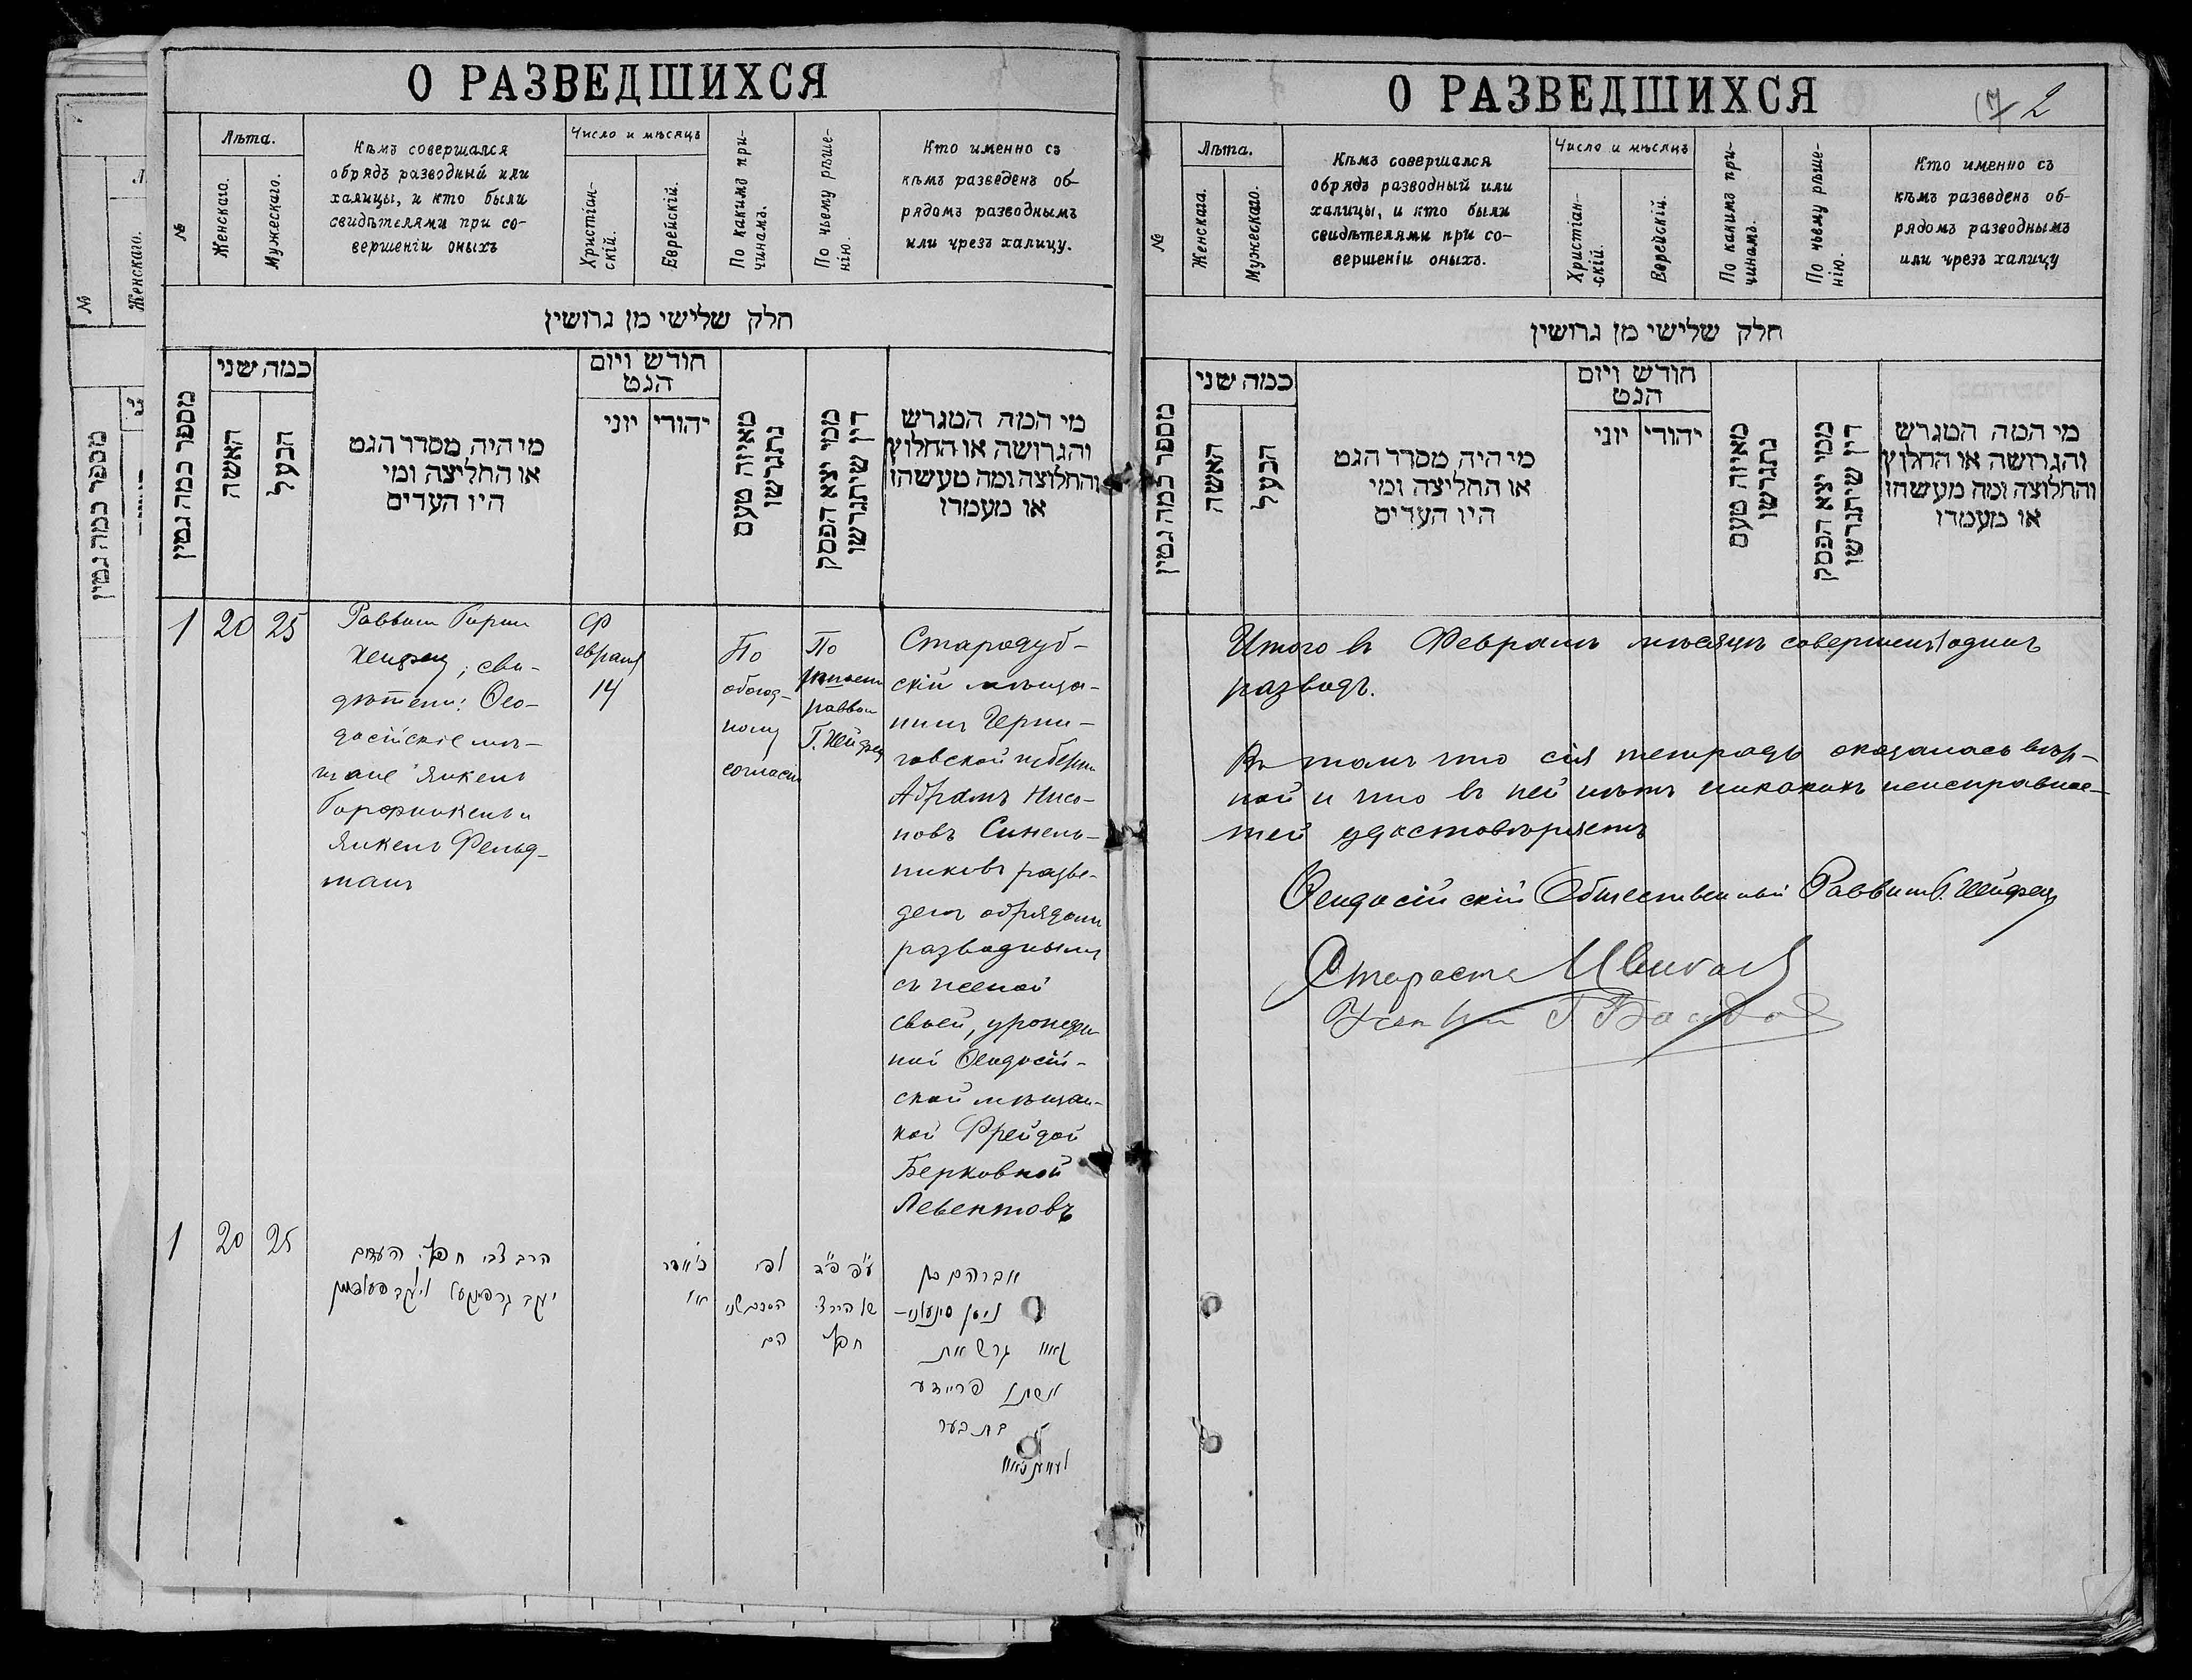 О РАЗВЕДШИХСЯ
№
Лѣта.
Женскаго.
Мужескаго.
Кѣмъ совершался
обрядъ разводный или
халицы, и кто были
свидѣтелями при со-
вершеніи оныхъ
Число и мѣсяцъ
Христіан-
скій.
Еврейскій.
По какимъ при-
чинамъ.
По чьему рѣше-
нію.
Кто именно съ
кѣмъ разведенъ об-
рядомъ разводнымъ
или чрезъ халицу.
חלק שלישי מן גרושין
מספר כמה גטין
כמה שני
האשה
הבעל
מי היה מסדר הגט
או החליצה ומי
היו העדים
חודש ויום
הגט
יוני
יהודי
מאיזה טעם
נתגרשו
ממי יצא הפסק
דין שיתגרשו
מי המה המגרש
והגרושה או החלוץ
והחלוצה ומה מעשהו
או מעמדו
1
20
25
Раввин Гирш
Хейфец; сви-
дѣтели: Ѳео-
досійскіе мѣ-
щане Янкель
Гарфинкель и
Янкель Фельд-
манъ
Ф
евраля
14
По
обоюд-
ному
согласію
По
рѣшенію
раввин
Г. Хейфец
Стародуб-
скій мѣща-
нинъ Черни-
говской губерніи
Абрамъ Нисо-
новъ Синель-
никовъ разве-
денъ обрядомъ
разводнымъ
съ женой
своей, урожден
ной Ѳеодосій-
ской мѣщан-
кой Фрейдой
Берковной
Левентовъ
1
20
25
הרב צבי חפץ העדים
יעקב גרפינקעל ויעקב פעלדמאן
לפי
הסכם שני
הם
ע"פ פ"ד
של הרצ
חפץ
אברהם בן
ניסן סינעלני-
קאוו גרש את
אשתו פריידע
בת בער
לעווענטאוו
О РАЗВЕДШИХСЯ
2
№
Лѣта.
Женскаго.
Мужескаго.
Кѣмъ совершался
обрядъ разводный или
халицы, и кто были
свидѣтелями при со-
вершеніи оныхъ.
Число и мѣсяцъ
Христіан-
скій.
Еврейскій.
По какимъ при-
чинамъ.
По чьему рѣше-
нію.
Кто именно съ
кѣмъ разведенъ об-
рядомъ разводнымъ
или чрезъ халицу
חלק שלישי מן גרושין
מספר כמה גטין
כמה שני
האשה
הבעל
מי היה מסדר הגט
או החליצה ומי
היו העדים
חודש ויום
הגט
יוני
יהודי
מאיזה טעם
נתגרשו
ממי יצא הפסק
דין שיתגרשו
מי המה המגרש
והגרושה או החלוץ
והחלוצה ומה מעשהו
או מעמדו
Итого въ Февралѣ мѣсяцѣ совершенъ 1 одинъ
разводъ.
Въ томъ что сія тетрадь оказалась вѣр-
ной и что въ ней нѣтъ никакихъ неисправнос-
тей удостовѣряетъ
Ѳеодосійскій Общественный Раввинъ Г. Хейфец
Староста